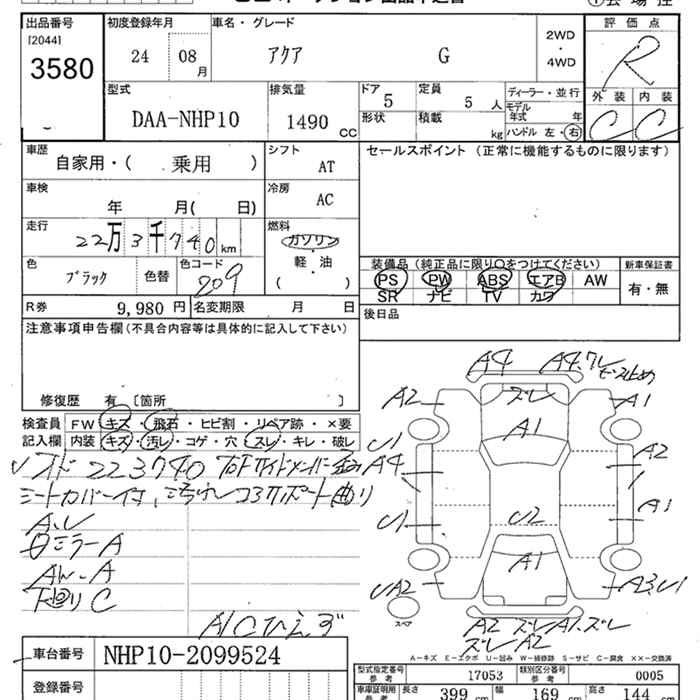 出品番号 初度登録年月 車名・グレード 2WD・4WD 評価点
[2044]
3580 24 08月 アクア G R
型式 排気量 ドア 定員 ディーラー・並行 外装 内装
DAA-NHP10 1490 CC 5 5人 モデル年式 年 C C
形状 積載 kg ハンドル 左・右
車歴 シフト セールスポイント (正常に機能するものに限ります)
自家用・( 乗用 ) AT
車検 冷房
年 月( 日) AC
走行 燃料
22万3千740km ガソリン
軽・油
( )
色 色コード 装備品(純正品に限り○をつけてください) 新車保証書
ブラック 色替 209 PS PW ABS エアB AW 有・無
SR ナビ TV カワ
R券 9,980円 名変期限 月 日
後日品
注意事項申告欄(不具合内容等は具体的に記入して下さい)
修復歴 有 〔箇所 〕
検査員 FW キズ・飛石・ヒビ割・リペア跡・×要
記入欄 内装 キズ・汚レ・コゲ・穴・スレ・キレ・破レ
223740
シートカバー付
ミラーA
下廻りC
A/Cひえず
A4 A4.ズレ
A2 ズレ A1
A1
U1 A2
A4
U1 U2 A1
A1
UA2 A3.U1
スペア
A2 ズレ A1.ズレ
ズレ A2
A-キズ E-エクボ U-凹み W-補修跡 S-サビ C-腐食 XX-交換済
車台番号 NHP10-2099524
型式指定番号 参考 17053 類別区分番号 参考 0005
登録番号
車庫証明用 参考 長さ 399 cm 幅 169 cm 高さ 144 cm